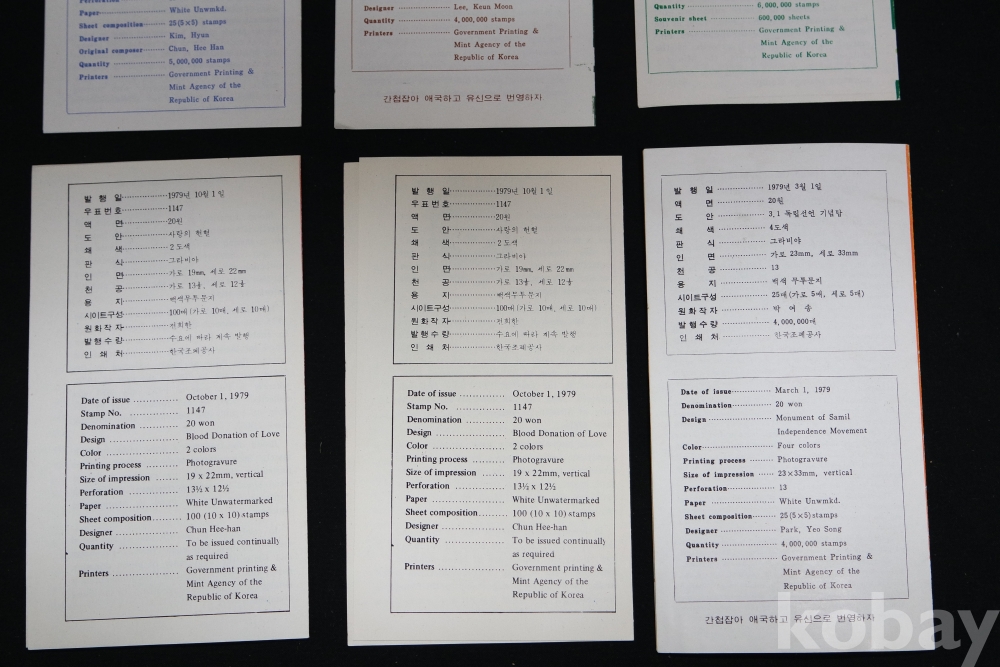 Perforation
Paper White Unwmkd.
Sheet composition 25(5×5) stamps
Designer Kim, Hyun
Original composer Chun, Hee Han
Quantity 5,000,000 stamps
Printers Government Printing &
Mint Agency of the
Republic of Korea
Designer Lee, Keun Moon
Quantity 4,000,000 stamps
Printers Government Printing &
Mint Agency of the
Republic of Korea
간첩잡아 애국하고 유신으로 번영하자
Quantity 6,000,000 stamps
Souvenir sheet 600,000 sheets
Printers Government Printing &
Mint Agency of the
Republic of Korea
발 행 일 1979년 10월 1일
우표번호 1147
액 면 20원
도 안 사랑의 헌혈
쇄 색 2도색
판 식 그라비아
인 면 가로 19mm, 세로 22mm
천 공 가로 13½, 세로 12½
용 지 백색무투문지
시이트구성 100매(가로 10매, 세로 10매)
원화작자 전희한
발행수량 수요에 따라 계속 발행
인 쇄 처 한국조폐공사
Date of issue October 1, 1979
Stamp No. 1147
Denomination 20 won
Design Blood Donation of Love
Color 2 colors
Printing process Photogravure
Size of impression 19 x 22mm, vertical
Perforation 13½ x 12½
Paper White Unwatermarked
Sheet composition 100 (10 x 10) stamps
Designer Chun Hee-han
Quantity To be issued continually
as required
Printers Government printing &
Mint Agency of the
Republic of Korea
발 행 일 1979년 10월 1일
우표번호 1147
액 면 20원
도 안 사랑의 헌혈
쇄 색 2도색
판 식 그라비아
인 면 가로 19mm, 세로 22mm
천 공 가로 13½, 세로 12½
용 지 백색무투문지
시이트구성 100매(가로 10매, 세로 10매)
원화작자 전희한
발행수량 수요에 따라 계속 발행
인 쇄 처 한국조폐공사
Date of issue October 1, 1979
Stamp No. 1147
Denomination 20 won
Design Blood Donation of Love
Color 2 colors
Printing process Photogravure
Size of impression 19 x 22mm, vertical
Perforation 13½ x 12½
Paper White Unwatermarked
Sheet composition 100 (10 x 10) stamps
Designer Chun Hee-han
Quantity To be issued continually
as required
Printers Government printing &
Mint Agency of the
Republic of Korea
발 행 일 1979년 3월 1일
액 면 20원
도 안 3.1 독립선언 기념탑
쇄 색 4도색
판 식 그라비아
인 면 가로 23mm, 세로 33mm
천 공 13
용 지 백색 무투문지
시이트구성 25매(가로 5매, 세로 5매)
원화작자 박 여 송
발행수량 4,000,000매
인 쇄 처 한국조폐공사
Date of issue March 1, 1979
Denomination 20 won
Design Monument of Samil
Independence Movement
Color Four colors
Printing process Photogravure
Size of impression 23×33mm, vertical
Perforation 13
Paper White Unwmkd.
Sheet composition 25(5×5)stamps
Designer Park, Yeo Song
Quantity 4,000,000 stamps
Printers Government Printing &
Mint Agency of the
Republic of Korea
간첩잡아 애국하고 유신으로 번영하자
kobay